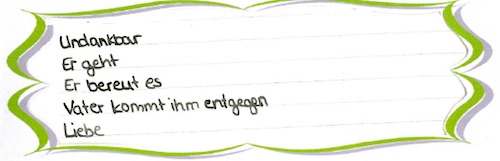 Undankbar
Er geht
Er bereut es
Vater kommt ihm entgegen
Liebe